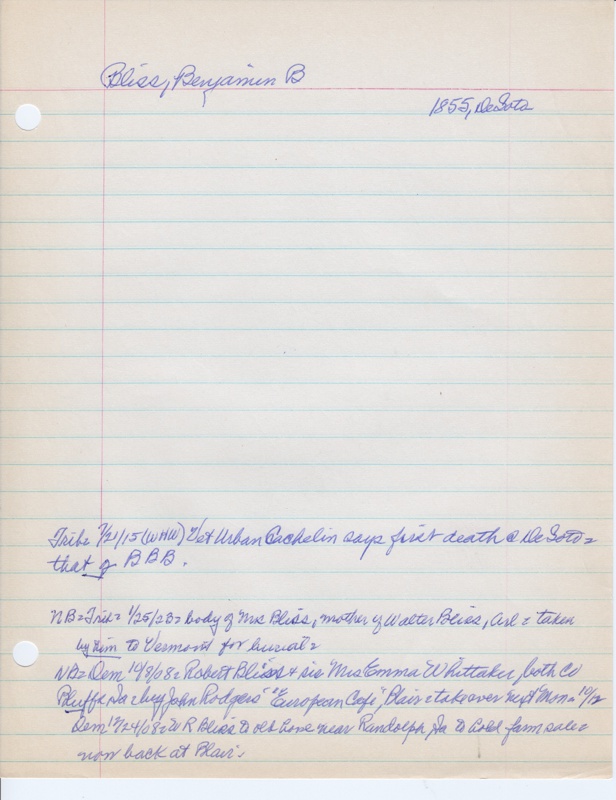 Bliss, Benjamin B
1855, DeSoto
Trib= 7/21/15 (WHW) Vet Urban Cachelin says first death @ DeSoto =
that of BBB.
NB= Trib= 1/25/23= body of Mrs Bliss, mother of Walter Bliss, Arl= taken
by him to Vermont for burial=
NB= Dem 10/8/08= Robert Bliss & sis Mrs Emma Whittaker, both Co
Bluffs Ia buy John Rodgers' "European Café", Blair= take over next Mon= 10/12
Dem 12/24/08= W R Bliss to old home near Randolph Ia to hold farm sale=
now back at Blair.